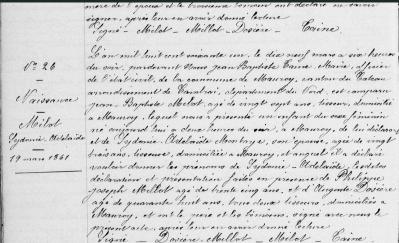 mère de l'épouse et le troisième témoin ont déclaré ne savoir
signer, après leur en avoir donné lecture
Signé - Milot - Millot - Dosière - Taine.
No. 26
Naissance
Milot
Sydonie-Adélaïde
19 mars 1861
L'an mil huit cent soixante un, le dix neuf mars à six heures
du soir, pardevant Nous Jean Baptiste Taine, Maire, officier
de l'état civil, de la commune de Maurois, canton du Cateau
arrondissement de Cambrai, département du Nord, est comparu
Jean Baptiste Milot, âgé de vingt sept ans, tisseur, domicilié
à Maurois, lequel nous a présenté un enfant du sexe féminin
né aujourd'hui à deux heures du soir, à Maurois, de lui déclarant
et de Sydonie Adélaïde Montaye, son épouse, âgée de vingt
trois ans, tisseuse, domiciliée à Maurois, et auquel il a déclaré
vouloir donner les prénoms de Sydonie-Adélaïde. Lesdites
déclaration et présentation faites en présence de Philippe
Joseph Millot âgé de trente cinq ans, et d'Auguste Dosière
âgé de quarante huit ans, tous deux tisseurs, domiciliés à
Maurois, et ont le père et les témoins, signé avec nous le
présent acte, après leur en avoir donné lecture
Signé Dosière - Millot - Milot - Taine